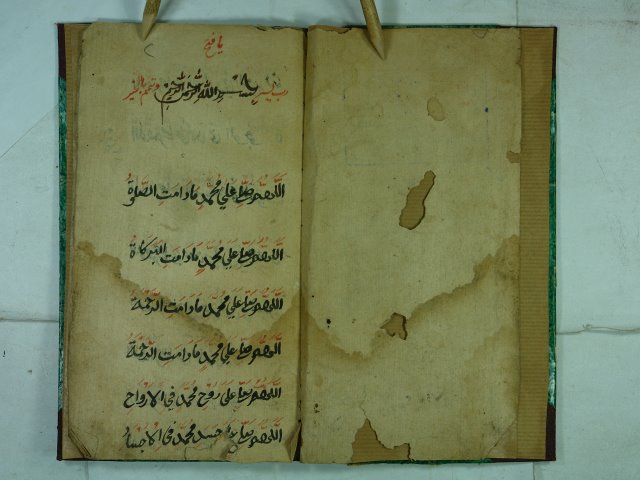 يا فتاح
رب يسر بسم الله الرحمن الرحيم وتمم بالخير
اللهم صل علي محمد مادامت الصلوة
اللهم صل علي محمد مادامت البركاة
اللهم صل علي محمد مادامت الرحمة
اللهم صل علي محمد مادامت الرحمة
اللهم صل علي روح محمد في الارواح
اللهم صل علي جسد محمد في الاجساد